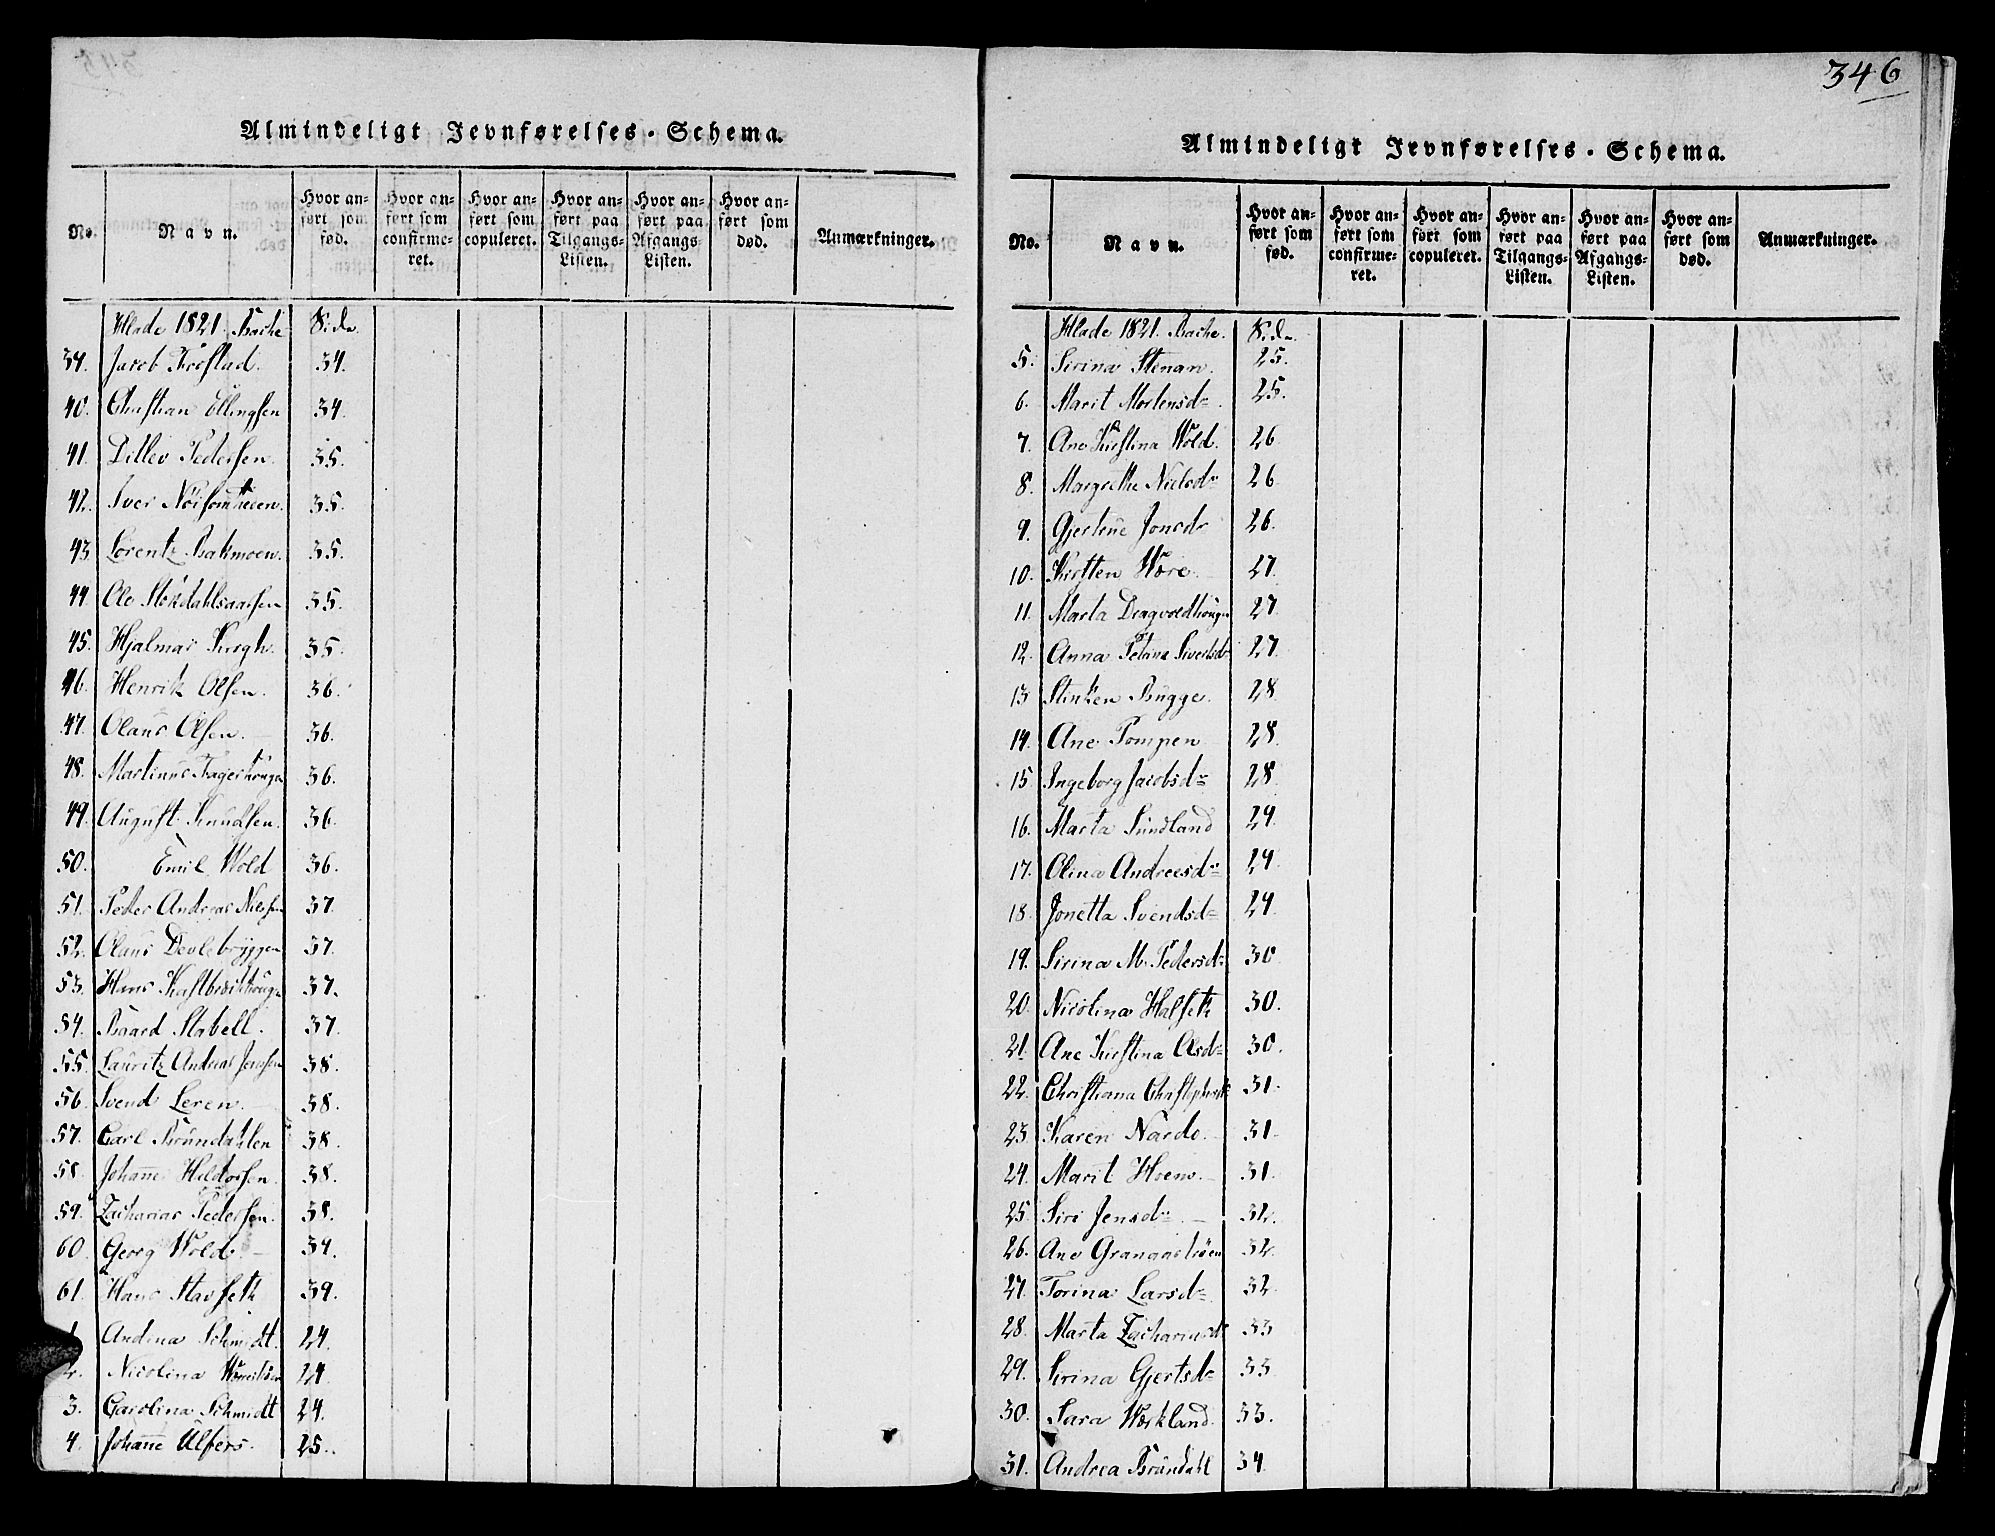 346
Almindeligt Jevnførelses-Schema.
No. Navn. Hvor anført som fød. Hvor anført som confirmeret. Hvor anført som copuleret. Hvor anført paa Tilgangs-Listen. Hvor anført paa Afgangs-Listen. Hvor anført som død. Anmærkninger.
Hlade 1821. Bache Side
39. Jacob 34.
40. Christian Ellingsen 34.
41. Ditlev Pedersen 35.
42. Iver 35.
43. Lorentz Bakmoen. 35.
44. Ole 35.
45. Hjalmar Krogh. 35.
46. Henrik Olsen. 36.
47. Olaus Olsen. 36.
48. Martinus Fagerhøugn 36.
49. August Knudsen. 36.
50. Emil Wold 36.
51. Peder Andreas Nielsen 37.
52. Olaus Devlebryggen 37.
53. Hans 37.
54. Baard Stabell. 37.
55. Lauritz Andreas Jensen 38.
56. Svend Leren. 38.
57. Carl Brundahlen 38.
58. Johan Hildorsen. 38.
59. Zacharias Pedersen. 38.
60. Georg Wold. 39.
61. Hans Stavseth 39.
1. Andrea Schmidt. 24.
2. Nicolina 24.
3. Carolina Schmidt 24.
4. Johanne Ulfers. 25.
Almindeligt Jevnførelses-Schema.
No. Navn. Hvor anført som fød. Hvor anført som confirmeret. Hvor anført som copuleret. Hvor anført paa Tilgangs-Listen. Hvor anført paa Afgangs-Listen. Hvor anført som død. Anmærkninger.
Hlade 1821. Bache. Side
5. Sirina Stenan. 25.
6. Marit Mortensdr. 25.
7. Ane Kirstina Wold. 26
8. Margrethe Nielsdr 26.
9. Gjertine Jonsdr 26.
10. Kirsten Være. 27.
11. Marta Dragvoldhøugn 27.
12. Anna Petrine Sivertsdr 27.
13. Stinken Bugge. 28
14. Ane Tompen 28.
15. Ingeborg Jacobsdr 28.
16. Marta Sundland 29.
17. Olina Andreesdr 29.
18. Jonetta Svendsdr 29.
19. Sirina M. Pedersdr 30
20. Nicolina Halseth 30.
21. Ane Kirstina Olsdr 30.
22. Christiana Christophersdr 31.
23. Karen Nardo. 31.
24. Marit Hoem. 31.
25. Siri Jensdr. 32.
26. Ane 32.
27. Torina Larsdr 32.
28. Marta Zachariasdr 33
29. Sirina Gjertsdr 33.
30. Sara Workland. 33.
31. Andrea Brundahl 34.